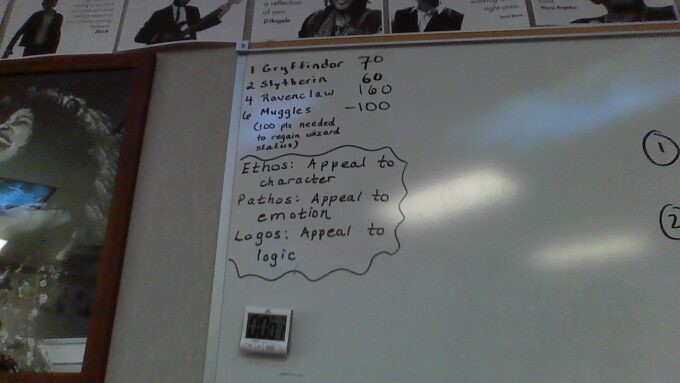 a reflection
of you.
D'Angelo
right area.
Maya Angelou
1 Gryffindor 70
2 Slytherin 60
4 Ravenclaw 160
6 Muggles -100
(100 pts needed
to regain wizard
status)
Ethos: Appeal to
character
Pathos: Appeal to
emotion
Logos: Appeal to
logic
1
2